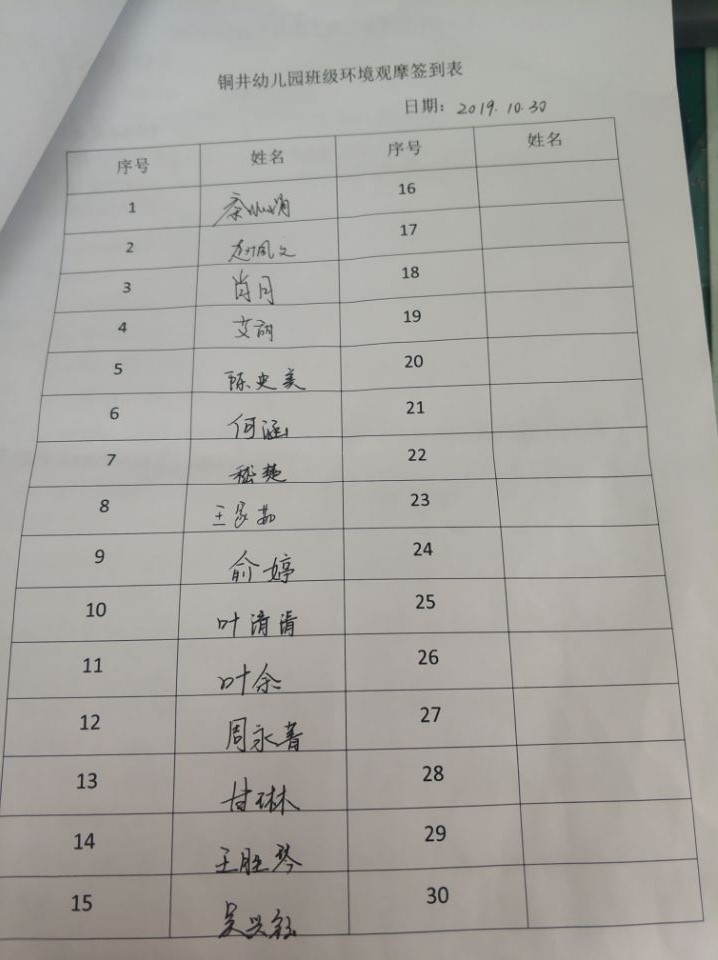 铜井幼儿园班级环境观摩签到表
日期：2019.10.30
序号 姓名 序号 姓名
1 16
2 赵凤文 17
3 肖月 18
4 艾 19
5 陈史美 20
6 何涵 21
7 嵇楚 22
8 王家茹 23
9 俞婷 24
10 叶清清 25
11 叶余 26
12 周永菁 27
13 甘琳 28
14 王胜琴 29
15 吴兴 30